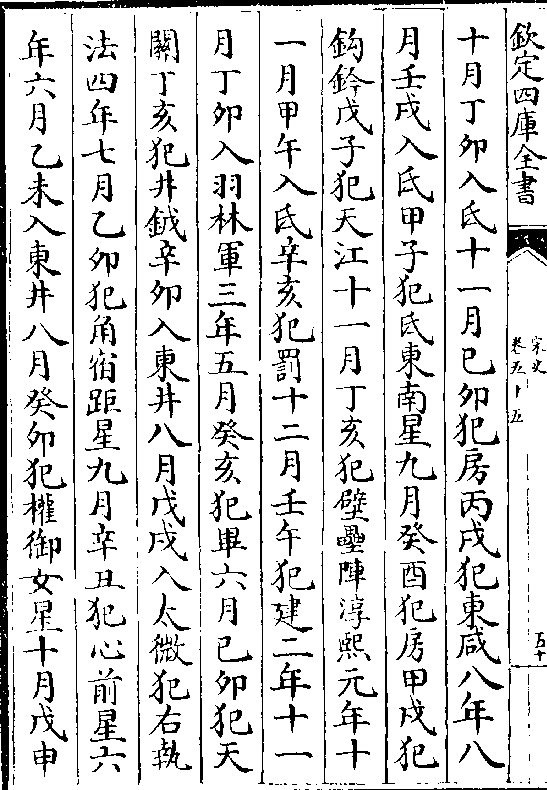 欽定四庫全書
宋史
卷五十五
五十
十月丁卯入氐十一月已卯犯房丙戌犯東咸八年八
月壬戌入氐甲子犯氐東南星九月癸酉犯房甲戌犯
鈎鈐戊子犯天江十一月丁亥犯壁壘陣淳熙元年十
一月甲午入氐辛亥犯罰十二月壬午犯建二年十一
月丁卯入羽林軍三年五月癸亥犯畢六月已卯犯天
關丁亥犯井鉞辛卯入東井八月戊戌入太微犯右執
法四年七月乙卯犯角宿距星九月辛丑犯心前星六
年六月乙未入東井八月癸卯犯權御女星十月戊申